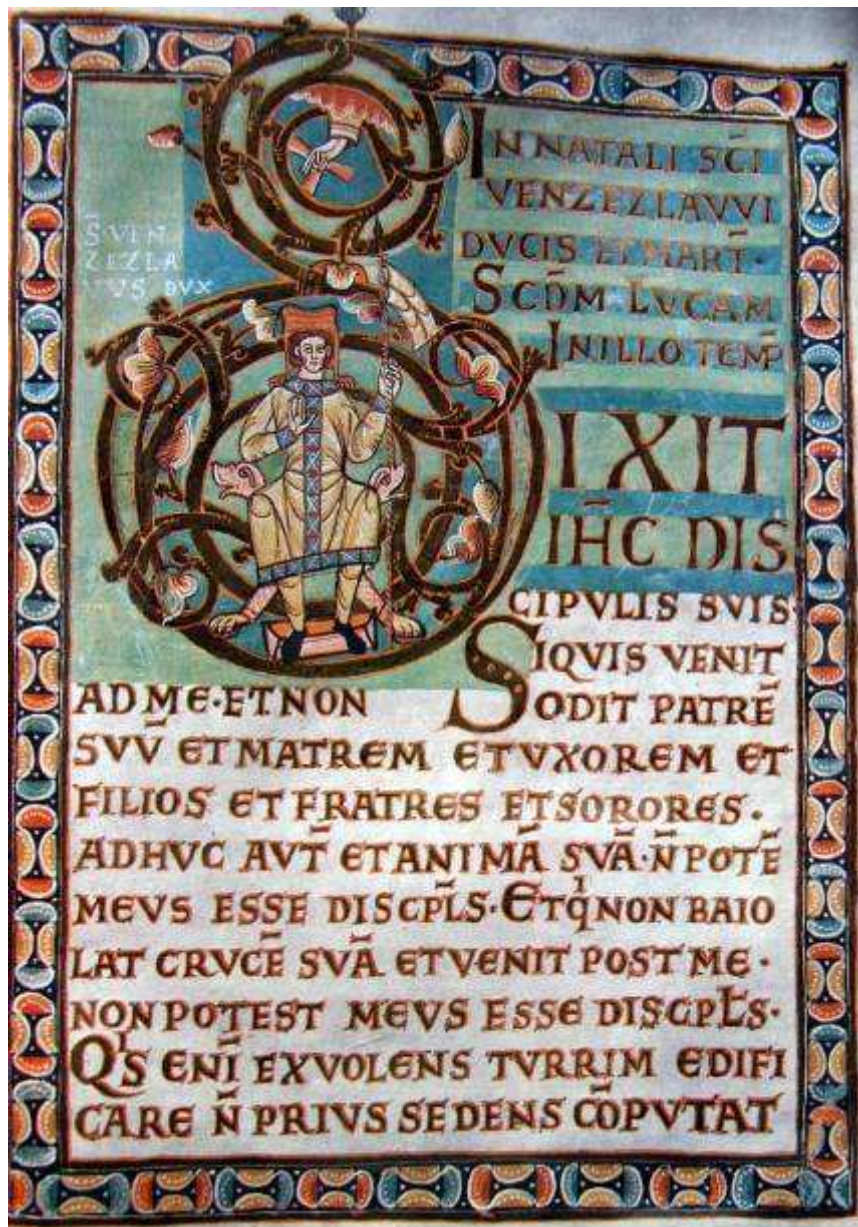 S̄ VEN
ZIZLA
VVS DVX
IN NATALI SC̄I
VENZEZLAVVI
DVCIS ET MART̄·
SCD̄M LVCAM
IN ILLO TEMP̄
IXIT
IH̄C DIS
CIPVLIS SVIS·
SIQVIS VENIT
AD ME·ET NON
SODIT PATRĒ
SVV̄ ET MATREM ET VXOREM ET
FILIOS ET FRATRES ET SORORES·
ADHVC AVT̄ ET ANIMĀ SVĀ·N̄ POTĒ
MEVS ESSE DISCPL̄S·ET Q̇ NON BAIO
LAT CRVCĒ SVĀ ET VENIT POST ME·
NON POTEST MEVS ESSE DISCPL̄S·
QͥS ENĪ EX VOLENS TVRRIM EDIFI
CARE N̄ PRIVS SEDENS CŌPVTAT